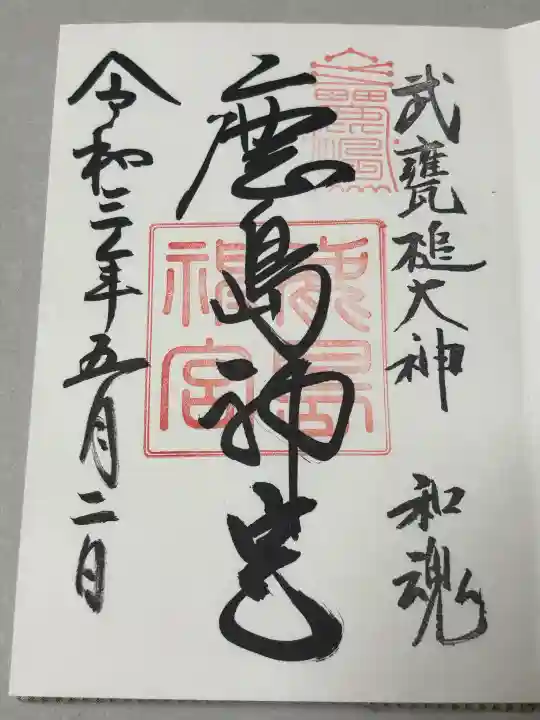 武甕槌大神 和魂
鹿島神宮
鹿島
神宮
令和三年五月二日